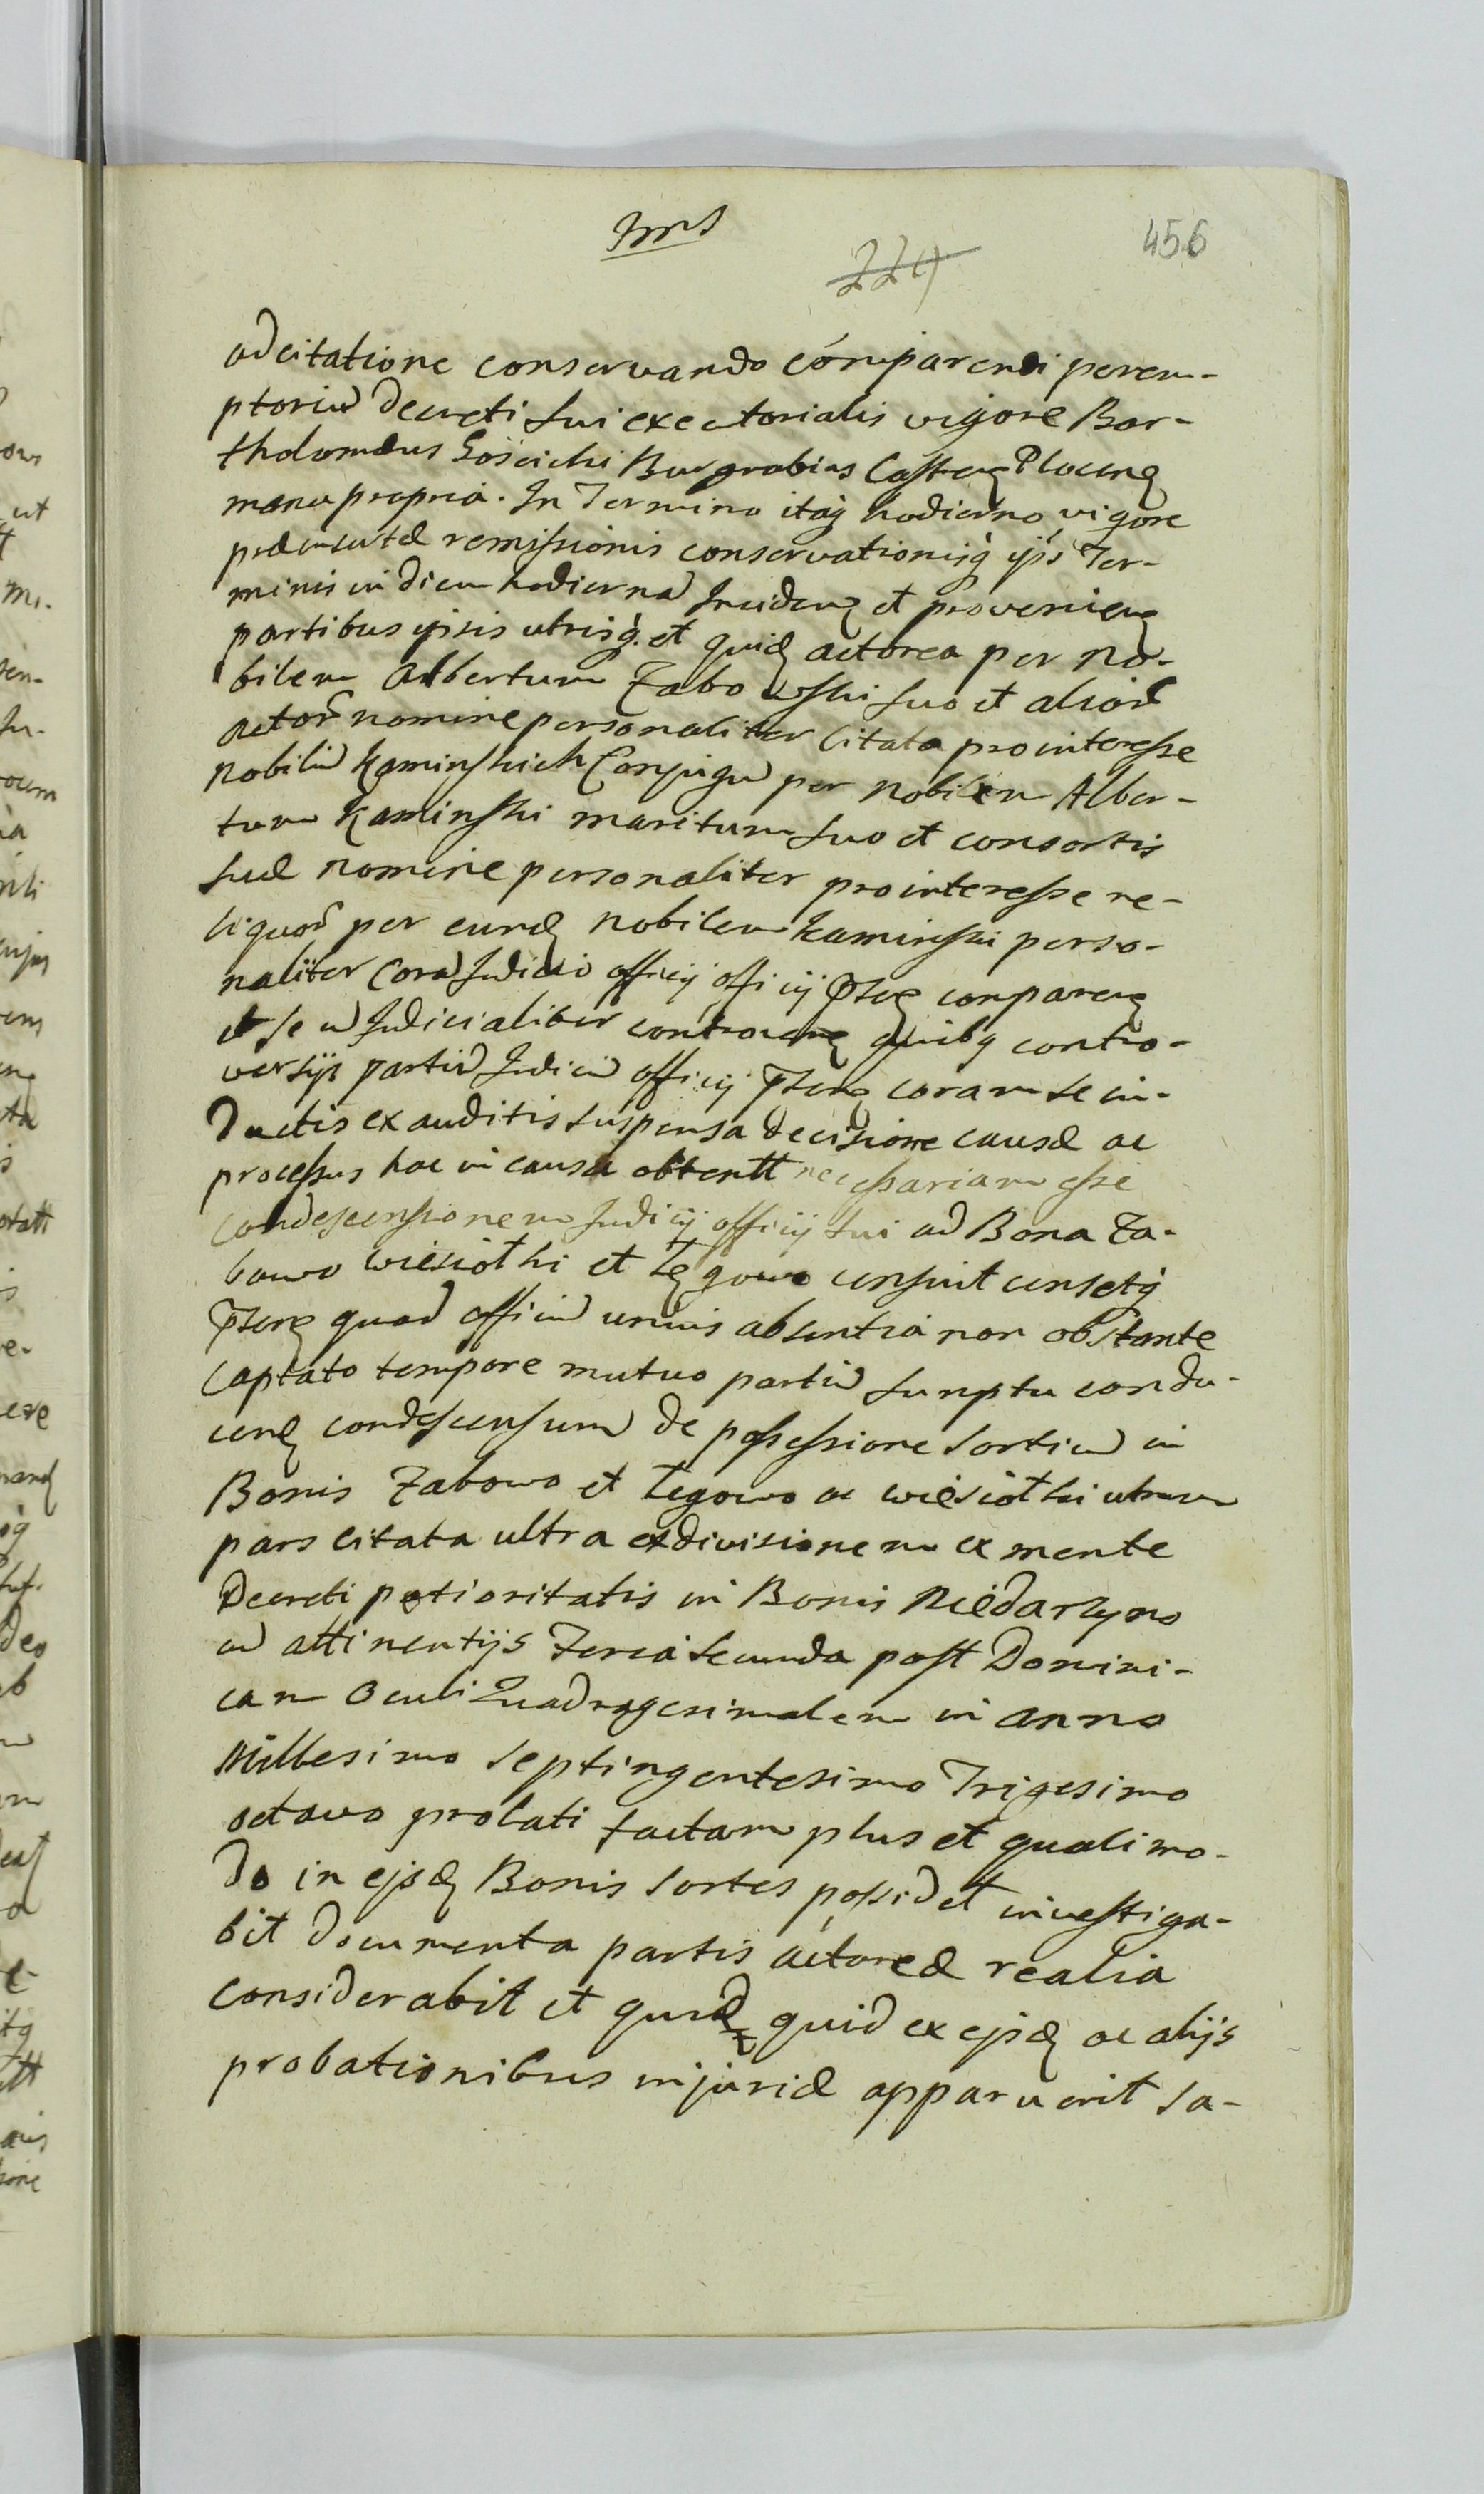 456
adcitatione conservando comparendi perem-
ptoriũ Decreti sui executorialis vigore Bar-
tholomæus Gościcki Burgrabius Castrenę Plocenę
manu propria. In Termino itaq̃ hodierno vigore
præinsertæ remissionis conservationisq̃ ejus Ter-
minis in diem hodiernã Inciden̨ et provenien̨
partibus ipsis utrisq̃. et quidę actorea per No-
bilem Albertum Zabowski suo et aliorũ
actorũ nomine personaliter Citata pro interesse
Nobiliũ Kaminskich Conjugũ per Nobilem Alber-
tum Kaminski maritum suo et consortis
suæ nomine personaliter pro interesse re-
liquorũ per eundę Nobilem Kaminski perso-
naliter Corã Judicio officij officij p̃senę comparenę
et se cũ Judicialiter controvenę quibg contro-
versijs partiũ Judiciũ officij p̃senę coram se in-
ductis exauditis suspensa decisione causæ ac
processus hac in causa obtentt necessariam esse
Condescensionem Judicij officij sui ad Bona Za-
bowo wiesiotki et Lęgowo censuit censetq̃
p̃senę quod officiũ unius absentia non obstante
Captato tempore mutuo partiũ sumptu condu-
cenę condescensum de possessione sortiũ in
Bonis Zabowo et Łęgowo ac wiesiotki utrum
pars citata ultra exdivisionem ex mente
Decreti potioritatis in Bonis Niedarzyno
cũ attinentijs Feria secunda post Domini-
cam Oculi Quadragesimalem in anno
Millesimo Septingentesimo Trigesimo
octavo prolati factam plus et quali mo-
do in ejsdę Bonis sortes possidet investiga-
bit documenta partis actoreæ realia
considerabit et quidę quid ex ejsdę ac alijs
probationibus injuriæ apparuerit sa-